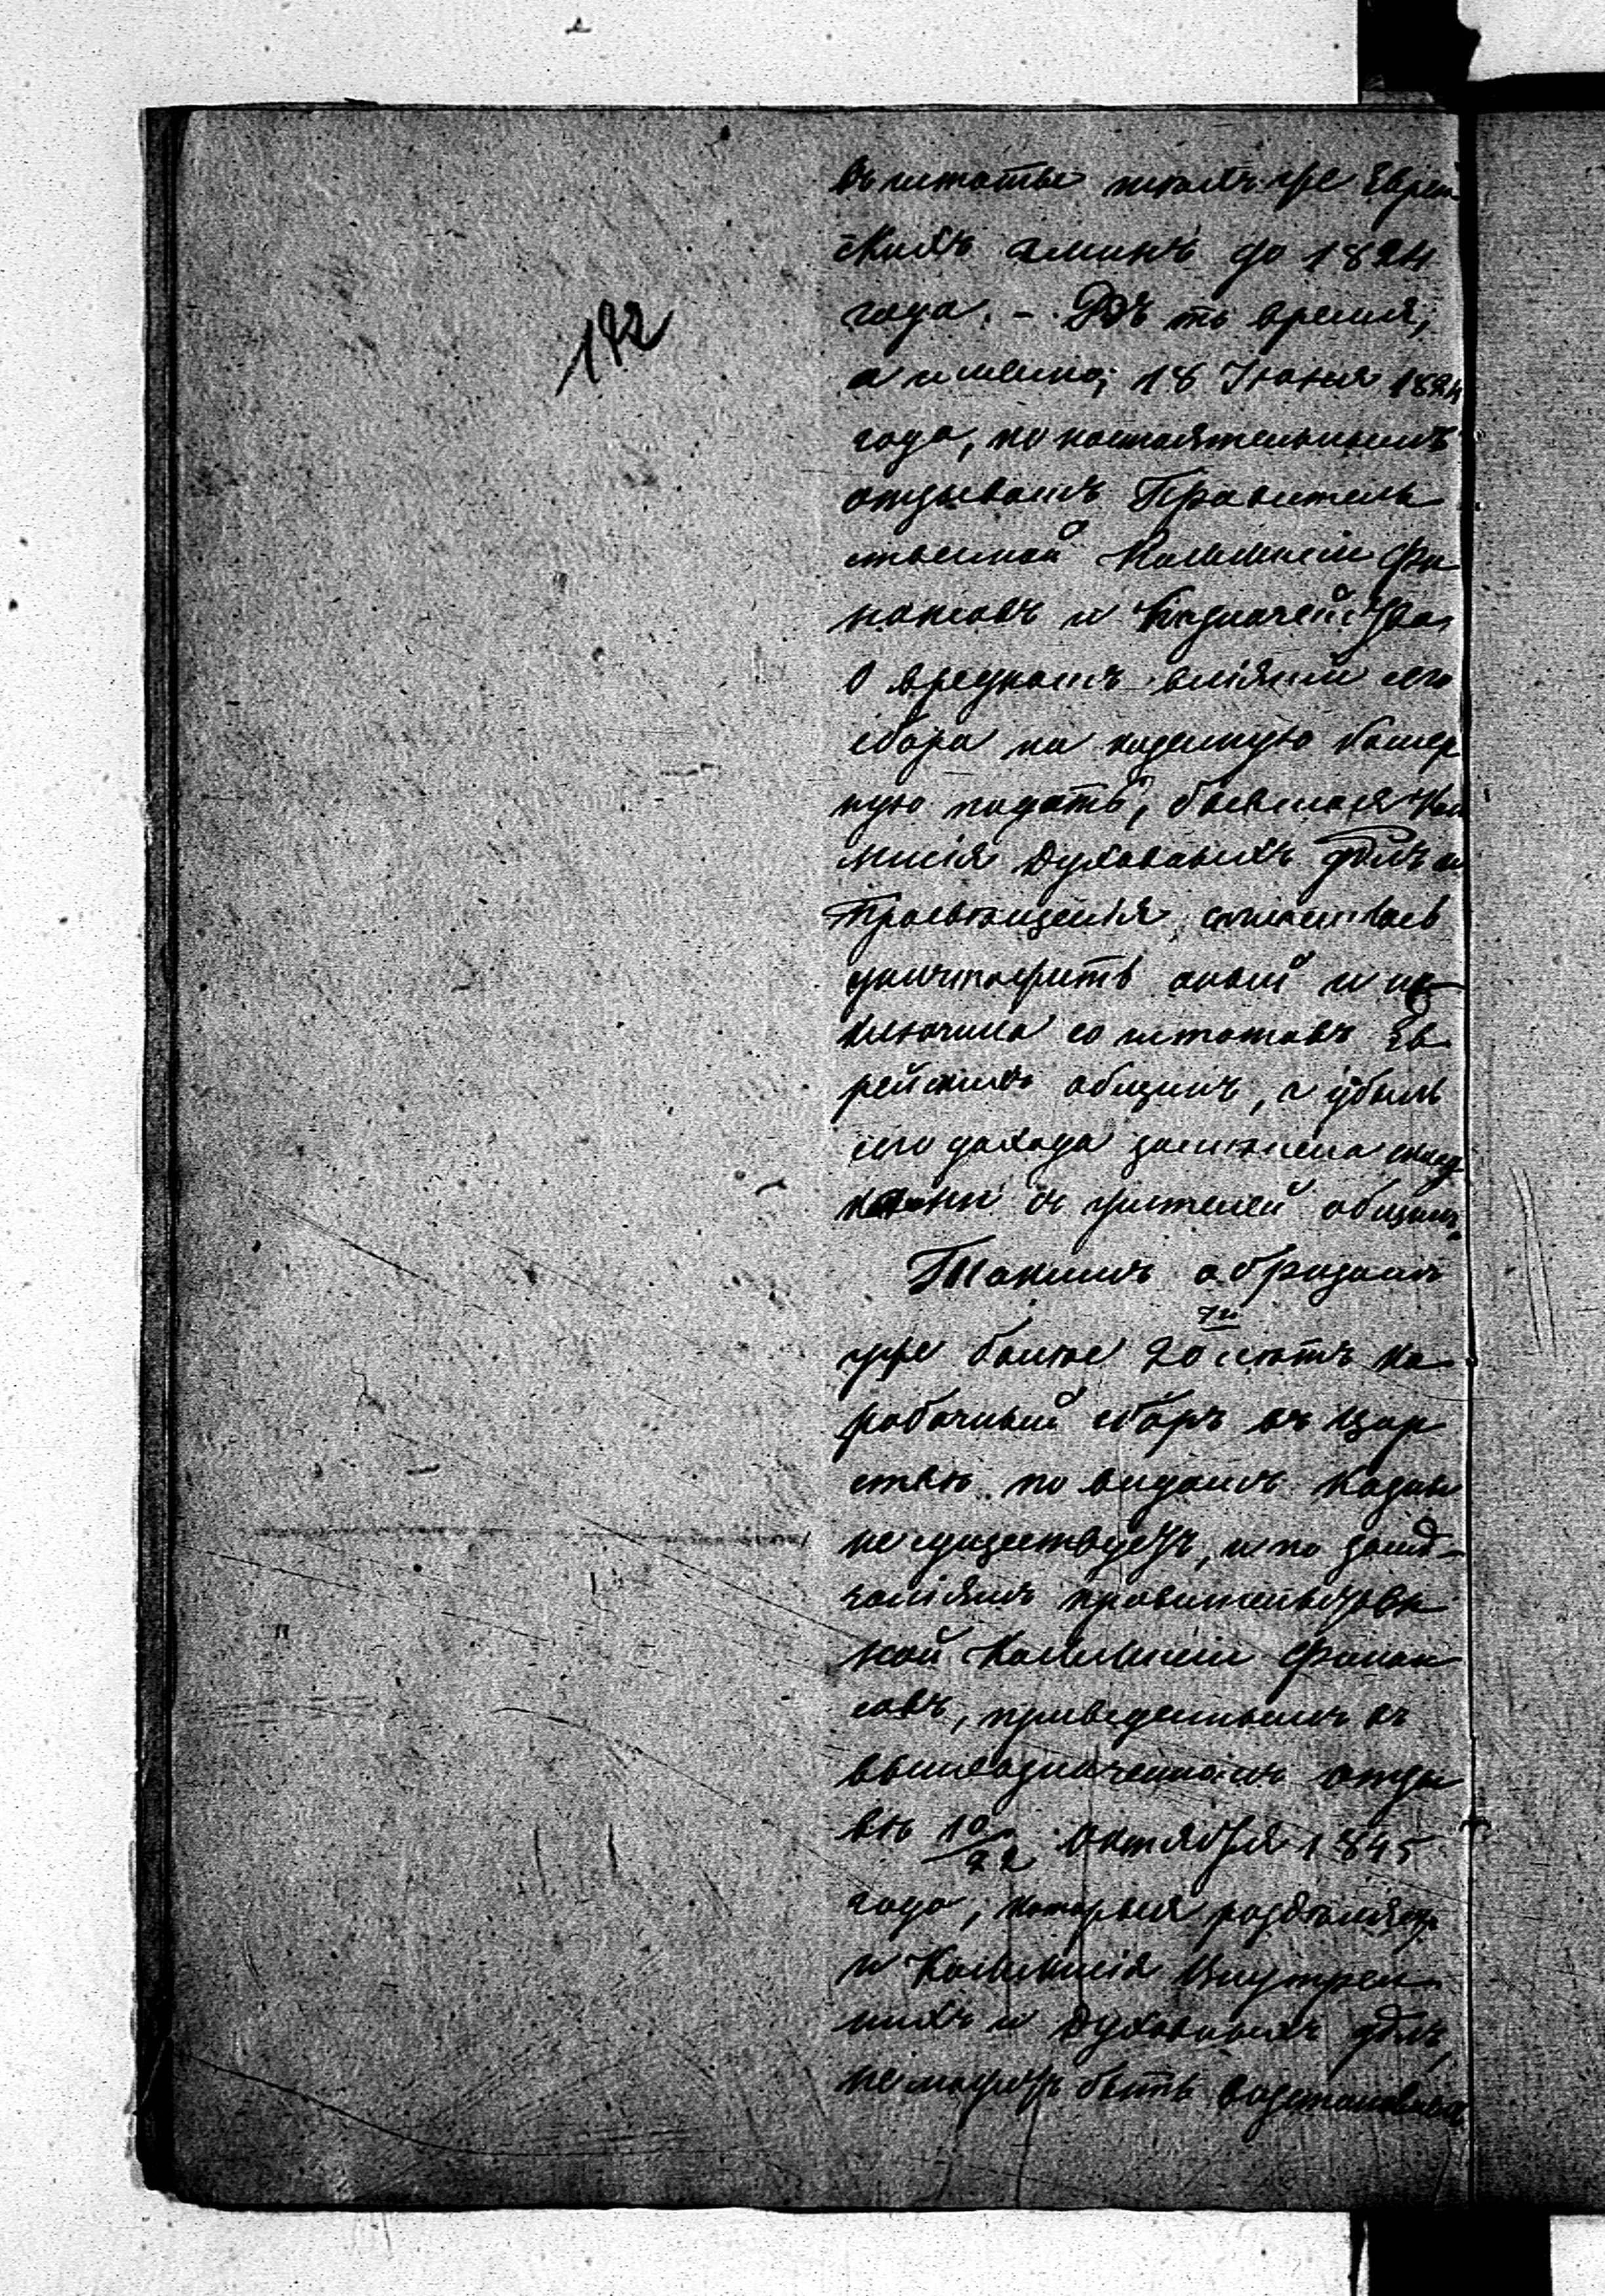 въ штатѣ такъ же Еврей
скихъ гминъ до 1824
года. – Въ то время,
а именно, 18 Іюня 1824
года, по настоятельнымъ
отзывамъ Правитель
ственной Коммисіи Фи
нансовъ и Казначейства,
о вредномъ вліяніи сего
сбора на казенную Кошер
ную подать, бывшая Ком
мисія Духовныхъ дѣлъ и
Просвѣщенія,
уничтожить оный и ис
ключила со штатовъ Ев
рейскихъ общинъ, а убыль
сего дохода замѣнена склад
ками съ жителей общинъ.
Такимъ образомъ
уже болѣе 20ти лѣтъ ко
робочный сборъ въ Цар
ствѣ по видамъ Казны
не существуетъ, и по замѣ
чаніямъ Правительствен
ной Коммисіи Финан
совъ, приведеннымъ въ
вышеозначенномъ отзы
вѣ 10/22 Октября 1845
года, которыя раздѣляетъ
и Коммисія Внутрен
нихъ и Духовныхъ дѣлъ,
не можетъ быть возстановленъ
192